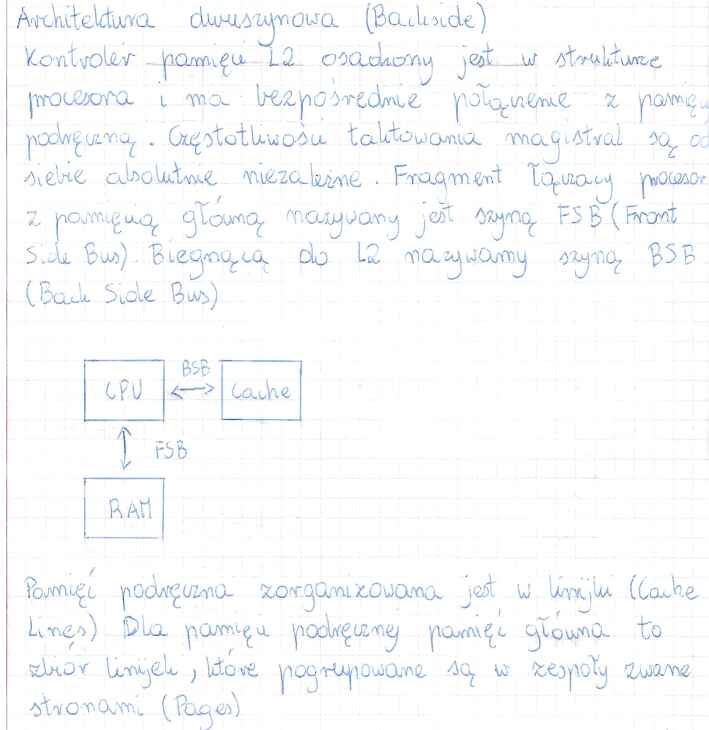 Architektura dwuszynowa (Backside)
Kontroler pamięci L2 osadzony jest w strukturze
procesora i ma bezpośrednie połączenie z pamięcią
podręczną. Częstotliwości taktowania magistral są od
siebie absolutnie niezależne. Fragment łączacy procesor
z pamięcią główną nazywany jest szyną FSB (Front
Side Bus). Biegnącą do L2 nazywamy szyną BSB
(Back Side Bus)
BSB
CPU Cache
FSB
RAM
Pamięć podręczna zorganizowana jest w linijki (Cache
Lines) Dla pamięci podręcznej pamięć główna to
zbiór linijek, które pogrupowane są w zespoły zwane
stronami (Pages)